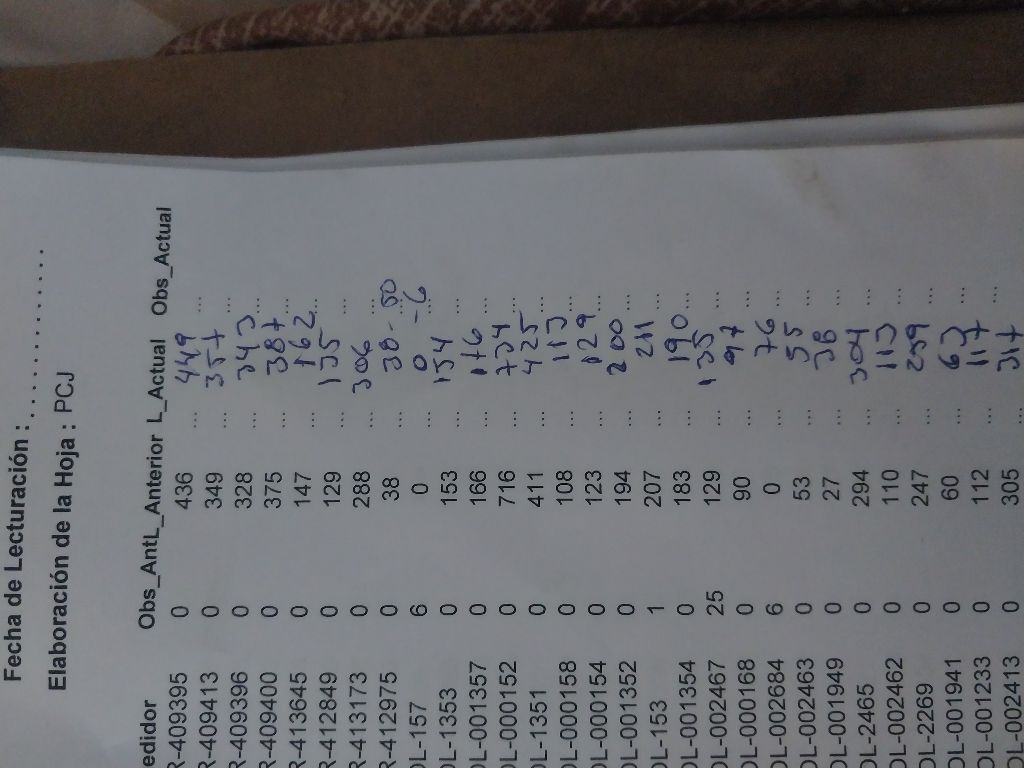 Fecha de Lecturación : ....................
Elaboración de la Hoja : PCJ
edidor Obs_AntL_Anterior L_Actual Obs_Actual
R-409395 0 436 ... 449 ...
R-409413 0 349 ... 357 ...
R-409396 0 328 ... 343 ...
R-409400 0 375 ... 387 ...
R-413645 0 147 ... 162 ...
R-412849 0 129 ... 135 ...
R-413173 0 288 ... 306 ...
R-412975 0 38 ... 38 - 50 ...
OL-157 6 0 ... 0 -6 ...
OL-1353 0 153 ... 154 ...
OL-001357 0 166 ... 176 ...
OL-000152 0 716 ... 734 ...
OL-1351 0 411 ... 425 ...
OL-000158 0 108 ... 113 ...
OL-000154 0 123 ... 129 ...
OL-001352 0 194 ... 200 ...
OL-153 1 207 ... 211 ...
OL-001354 0 183 ... 190 ...
OL-002467 25 129 ... 135 ...
OL-000168 0 90 ... 97 ...
OL-002684 6 0 ... 76 ...
OL-002463 0 53 ... 55 ...
OL-001949 0 27 ... 38 ...
OL-2465 0 294 ... 304 ...
OL-002462 0 110 ... 113 ...
OL-2269 0 247 ... 259 ...
OL-001941 0 60 ... 63 ...
OL-001233 0 112 ... 117 ...
OL-002413 0 305 ... 317 ...